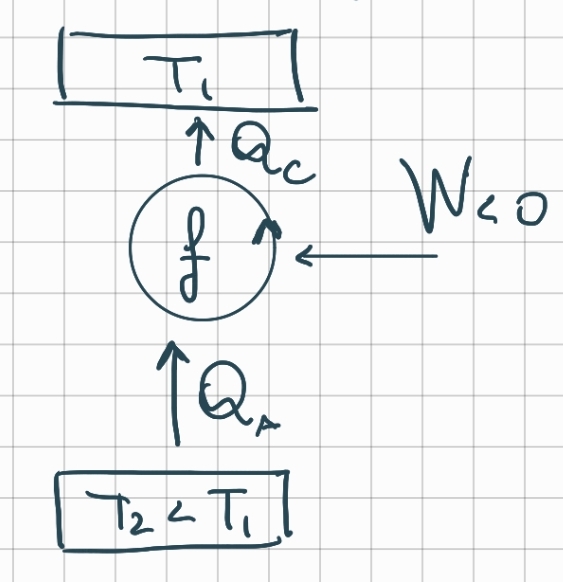 T₁
Q_C
W < 0
f
Q_A
T₂ < T₁